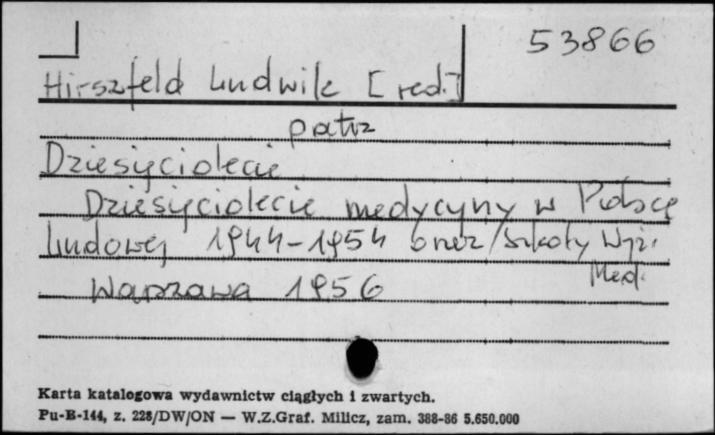 53866
Hirszfeld Ludwik [red.]
patrz
Dziesięciolecie
Dziesięciolecie medycyny w Polsce
Ludowej 1944-1954 oraz szkoły Wyż.
Med.
Warszawa 1956
Karta katalogowa wydawnictw ciągłych i zwartych.
Pu-B-144, z. 228/DW/ON — W.Z.Graf. Milicz, zam. 388-86 5.650.000